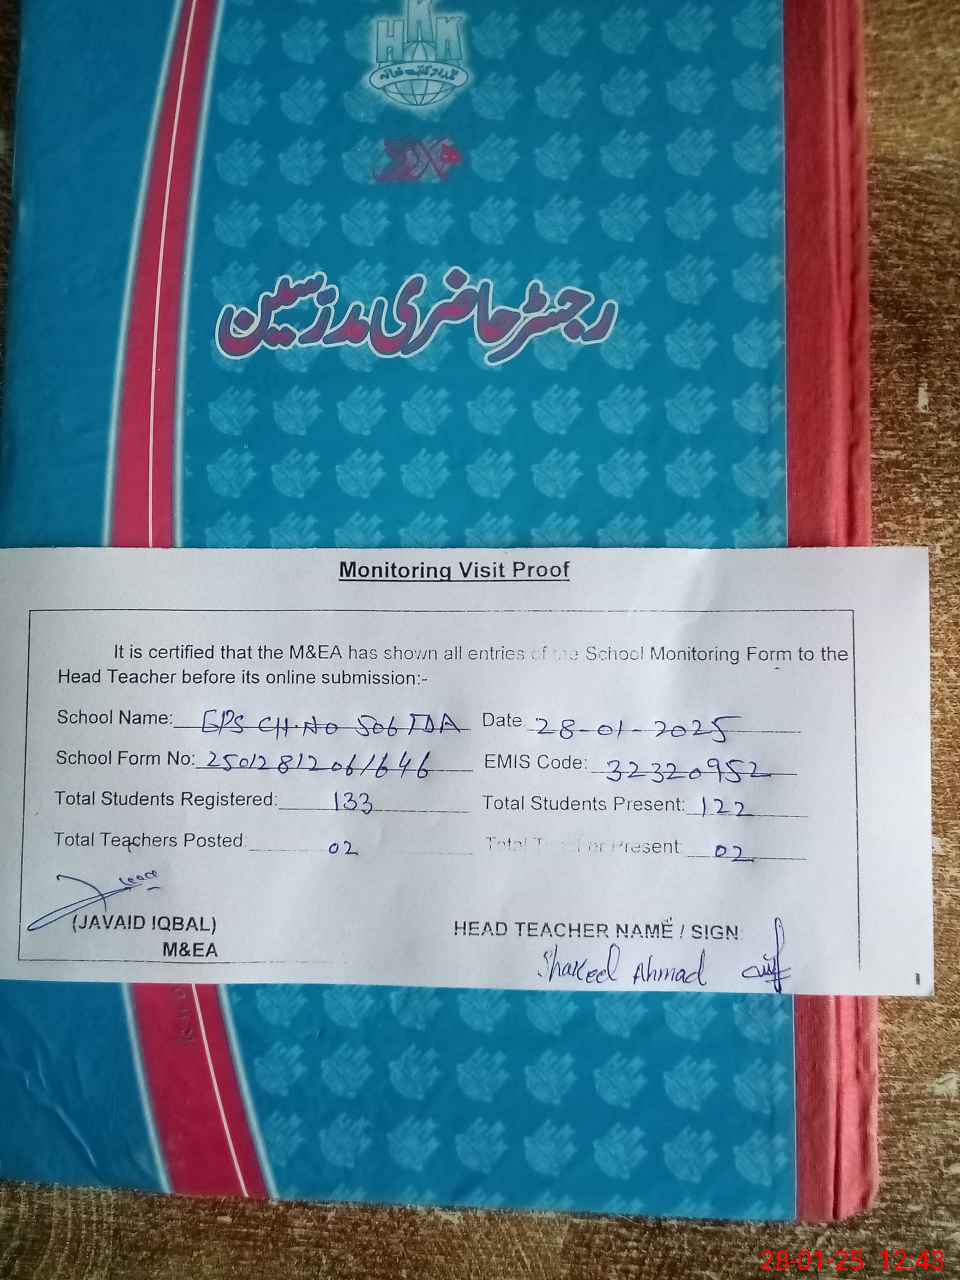 HKK
رجسٹر حاضری مدرسین
Monitoring Visit Proof
It is certified that the M&EA has shown all entries of the School Monitoring Form to the
Head Teacher before its online submission:-
School Name: GPS CH.NO 506 TDA Date 28-01-2025
School Form No: 25012812061646 EMIS Code: 32320952
Total Students Registered: 133 Total Students Present: 122
Total Teachers Posted 02 Total Present: 02
(JAVAID IQBAL) HEAD TEACHER NAME / SIGN:
M&EA Shakeel Ahmad
28-01-25 12:43